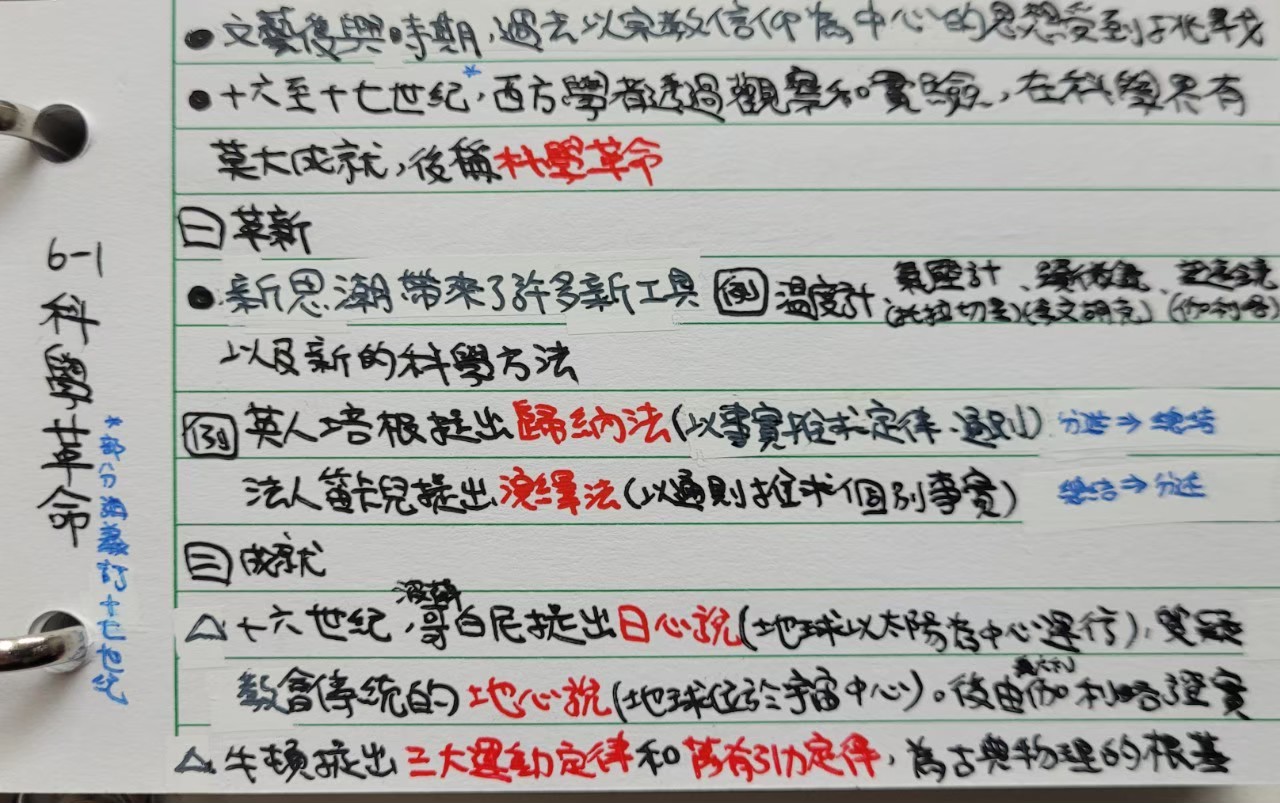 6-1 科學革命
*部分講義訂十七世紀
●文藝復興時期,過去以宗教信仰為中心的思想受到挑戰
●十六至十七世紀*,西方學者透過觀察和實驗,在科學界有
莫大成就,後稱科學革命
二革新
●新思潮帶來了許多新工具 例 溫度計 氣壓計、顯微鏡、望遠鏡
(托拉切里)(虎克)(伽利略)
以及新的科學方法
例 英人培根提出歸納法(以事實推求定律、通則) 分述⇒總結
法人笛卡兒提出演繹法(以通則推求個別事實) 總結⇒分述
三成就
△十六世紀,波蘭哥白尼提出日心說(地球以太陽為中心運行),雙疑
教會傳統的地心說(地球位於宇宙中心)。後由義大利伽利略證實
△牛頓提出三大運動定律和萬有引力定律,為古典物理的根基